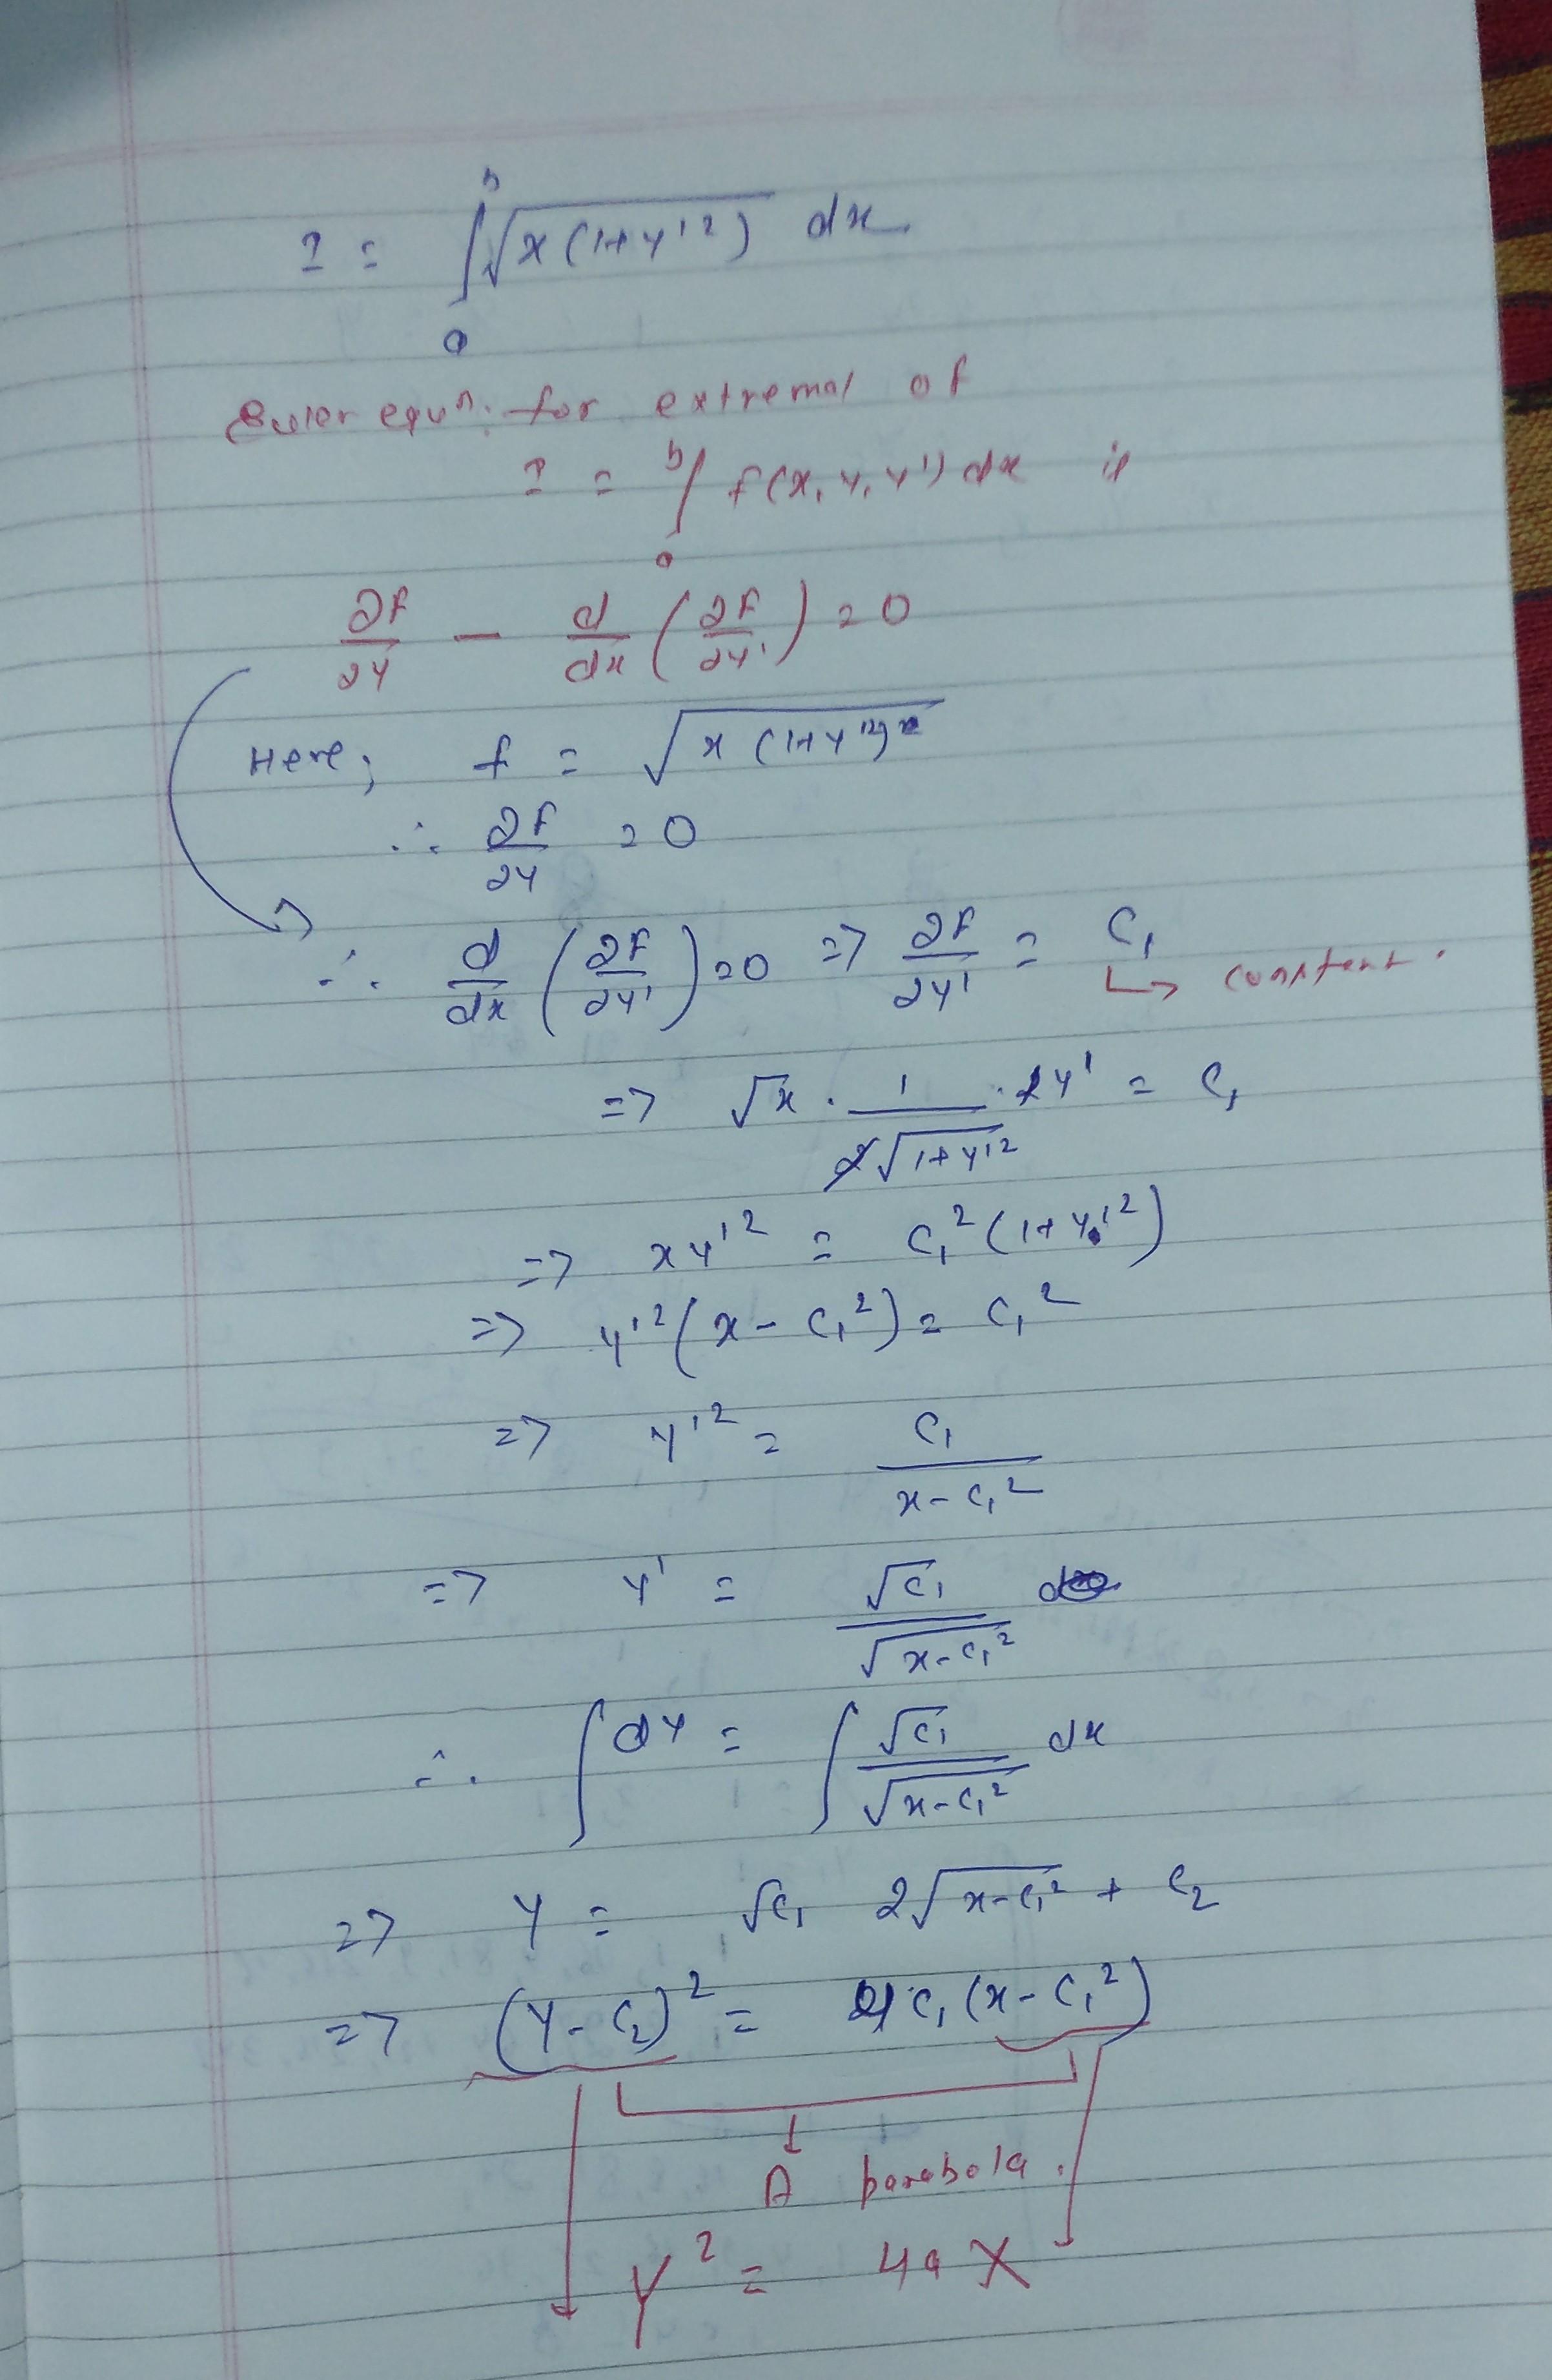 I = ∫ₐᵇ √(x(1+y'²)) dx
Euler equⁿ. for extremal of
I = ₐᵇ∫ f(x, y, y') dx is
∂f/∂y − d/dx (∂f/∂y') = 0
Here, f = √(x(1+y'²))
∴ ∂f/∂y = 0
∴ d/dx (∂f/∂y') = 0 => ∂f/∂y' = C₁ ↳ constant.
=> √x · 1/(2√(1+y'²)) · 2y' = C₁
=> xy'² = C₁²(1+y'²)
=> y'²(x − C₁²) = C₁²
=> y'² = C₁/(x−C₁²)
=> y' = √C₁/√(x−C₁²)
∴ ∫dy = ∫ √C₁/√(x−C₁²) dx
=> y = √C₁ 2√(x−C₁²) + C₂
=> (y−C₂)² = 4C₁(x−C₁²)
A parabola.
Y² = 4aX